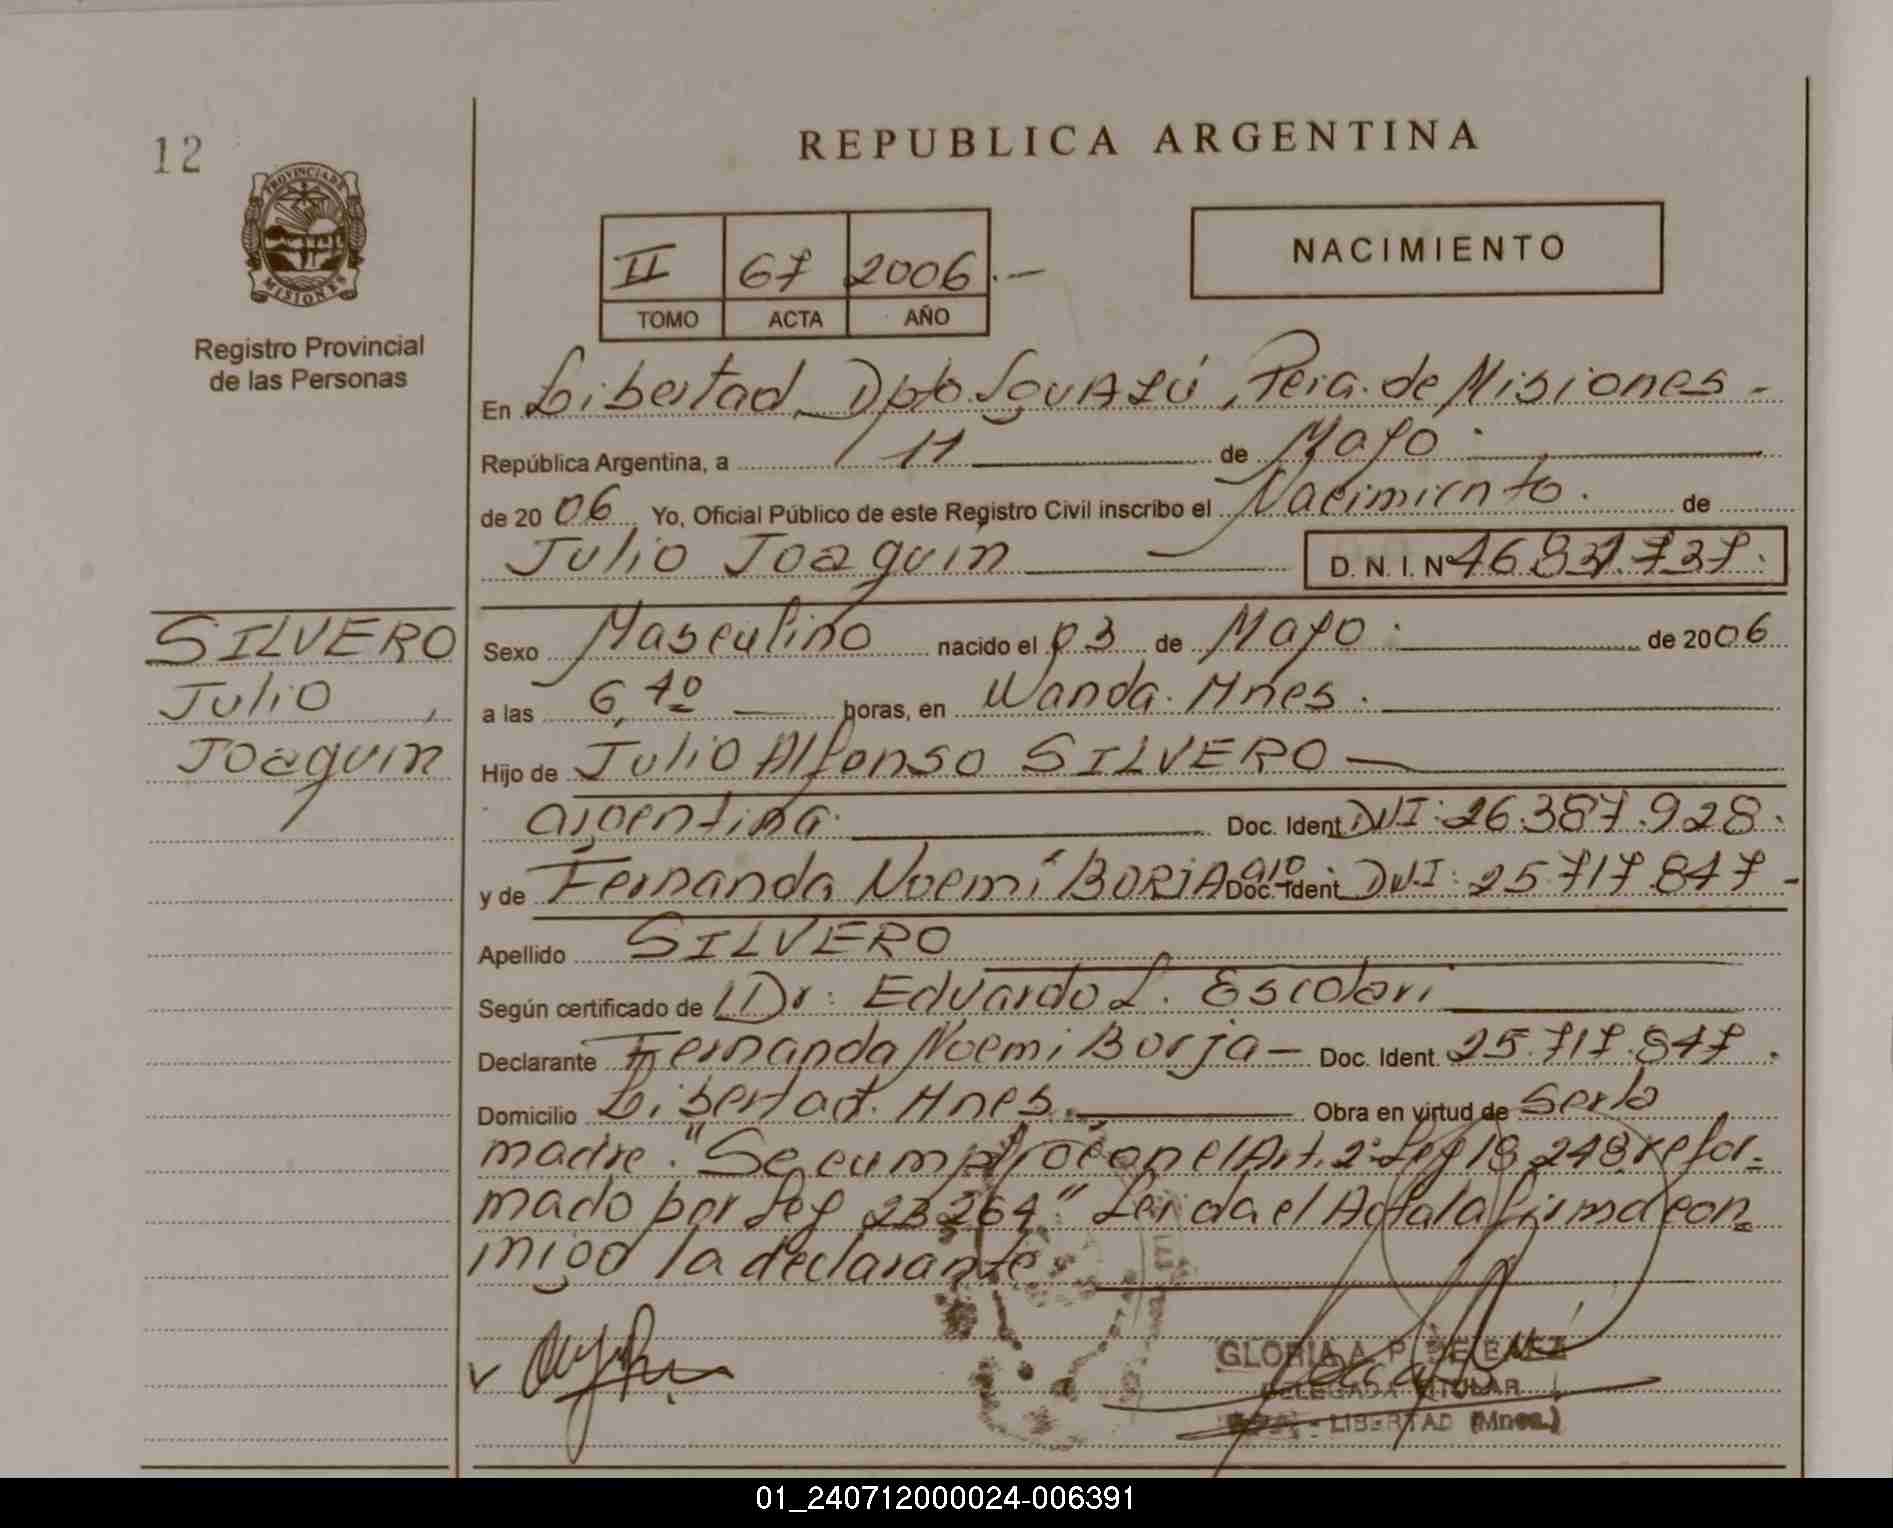 12
REPUBLICA ARGENTINA
PROVINCIA DE
MISIONES
Registro Provincial
de las Personas
II 67 2006.-
TOMO ACTA AÑO
NACIMIENTO
En Libertad, Dpto Iguazú, Pcia. de Misiones -
República Argentina, a 11 de Mayo.
de 2006 Yo, Oficial Público de este Registro Civil inscribo el Nacimiento. de
Julio Joaquin D. N. I. Nº 46.831.737.
SILVERO
Julio
Joaquin
Sexo Masculino nacido el 03 de Mayo. de 2006
a las 6,40 horas, en Wanda. Mnes.
Hijo de Julio Alfonso SILVERO
argentina. Doc. Ident DNI: 26.387.928.
y de Fernanda Noemi BORJA arg. Doc. Ident DNI: 25.717.847-
Apellido SILVERO
Según certificado de Dr: Eduardo L. Escolari
Declarante Fernanda Noemi Borja - Doc. Ident. 25.717.847.
Domicilio Libertad. Mnes. Obra en virtud de Ser la
madre. "Se cumplió con el Art. 2º Ley 18.248 refor-
mado por Ley 23264" Leida el Acta la firma con-
migo la declarante
GLORIA A. P. DE
DELEGADA TITULAR
- LIBERTAD (Mnes.)
01_240712000024-006391